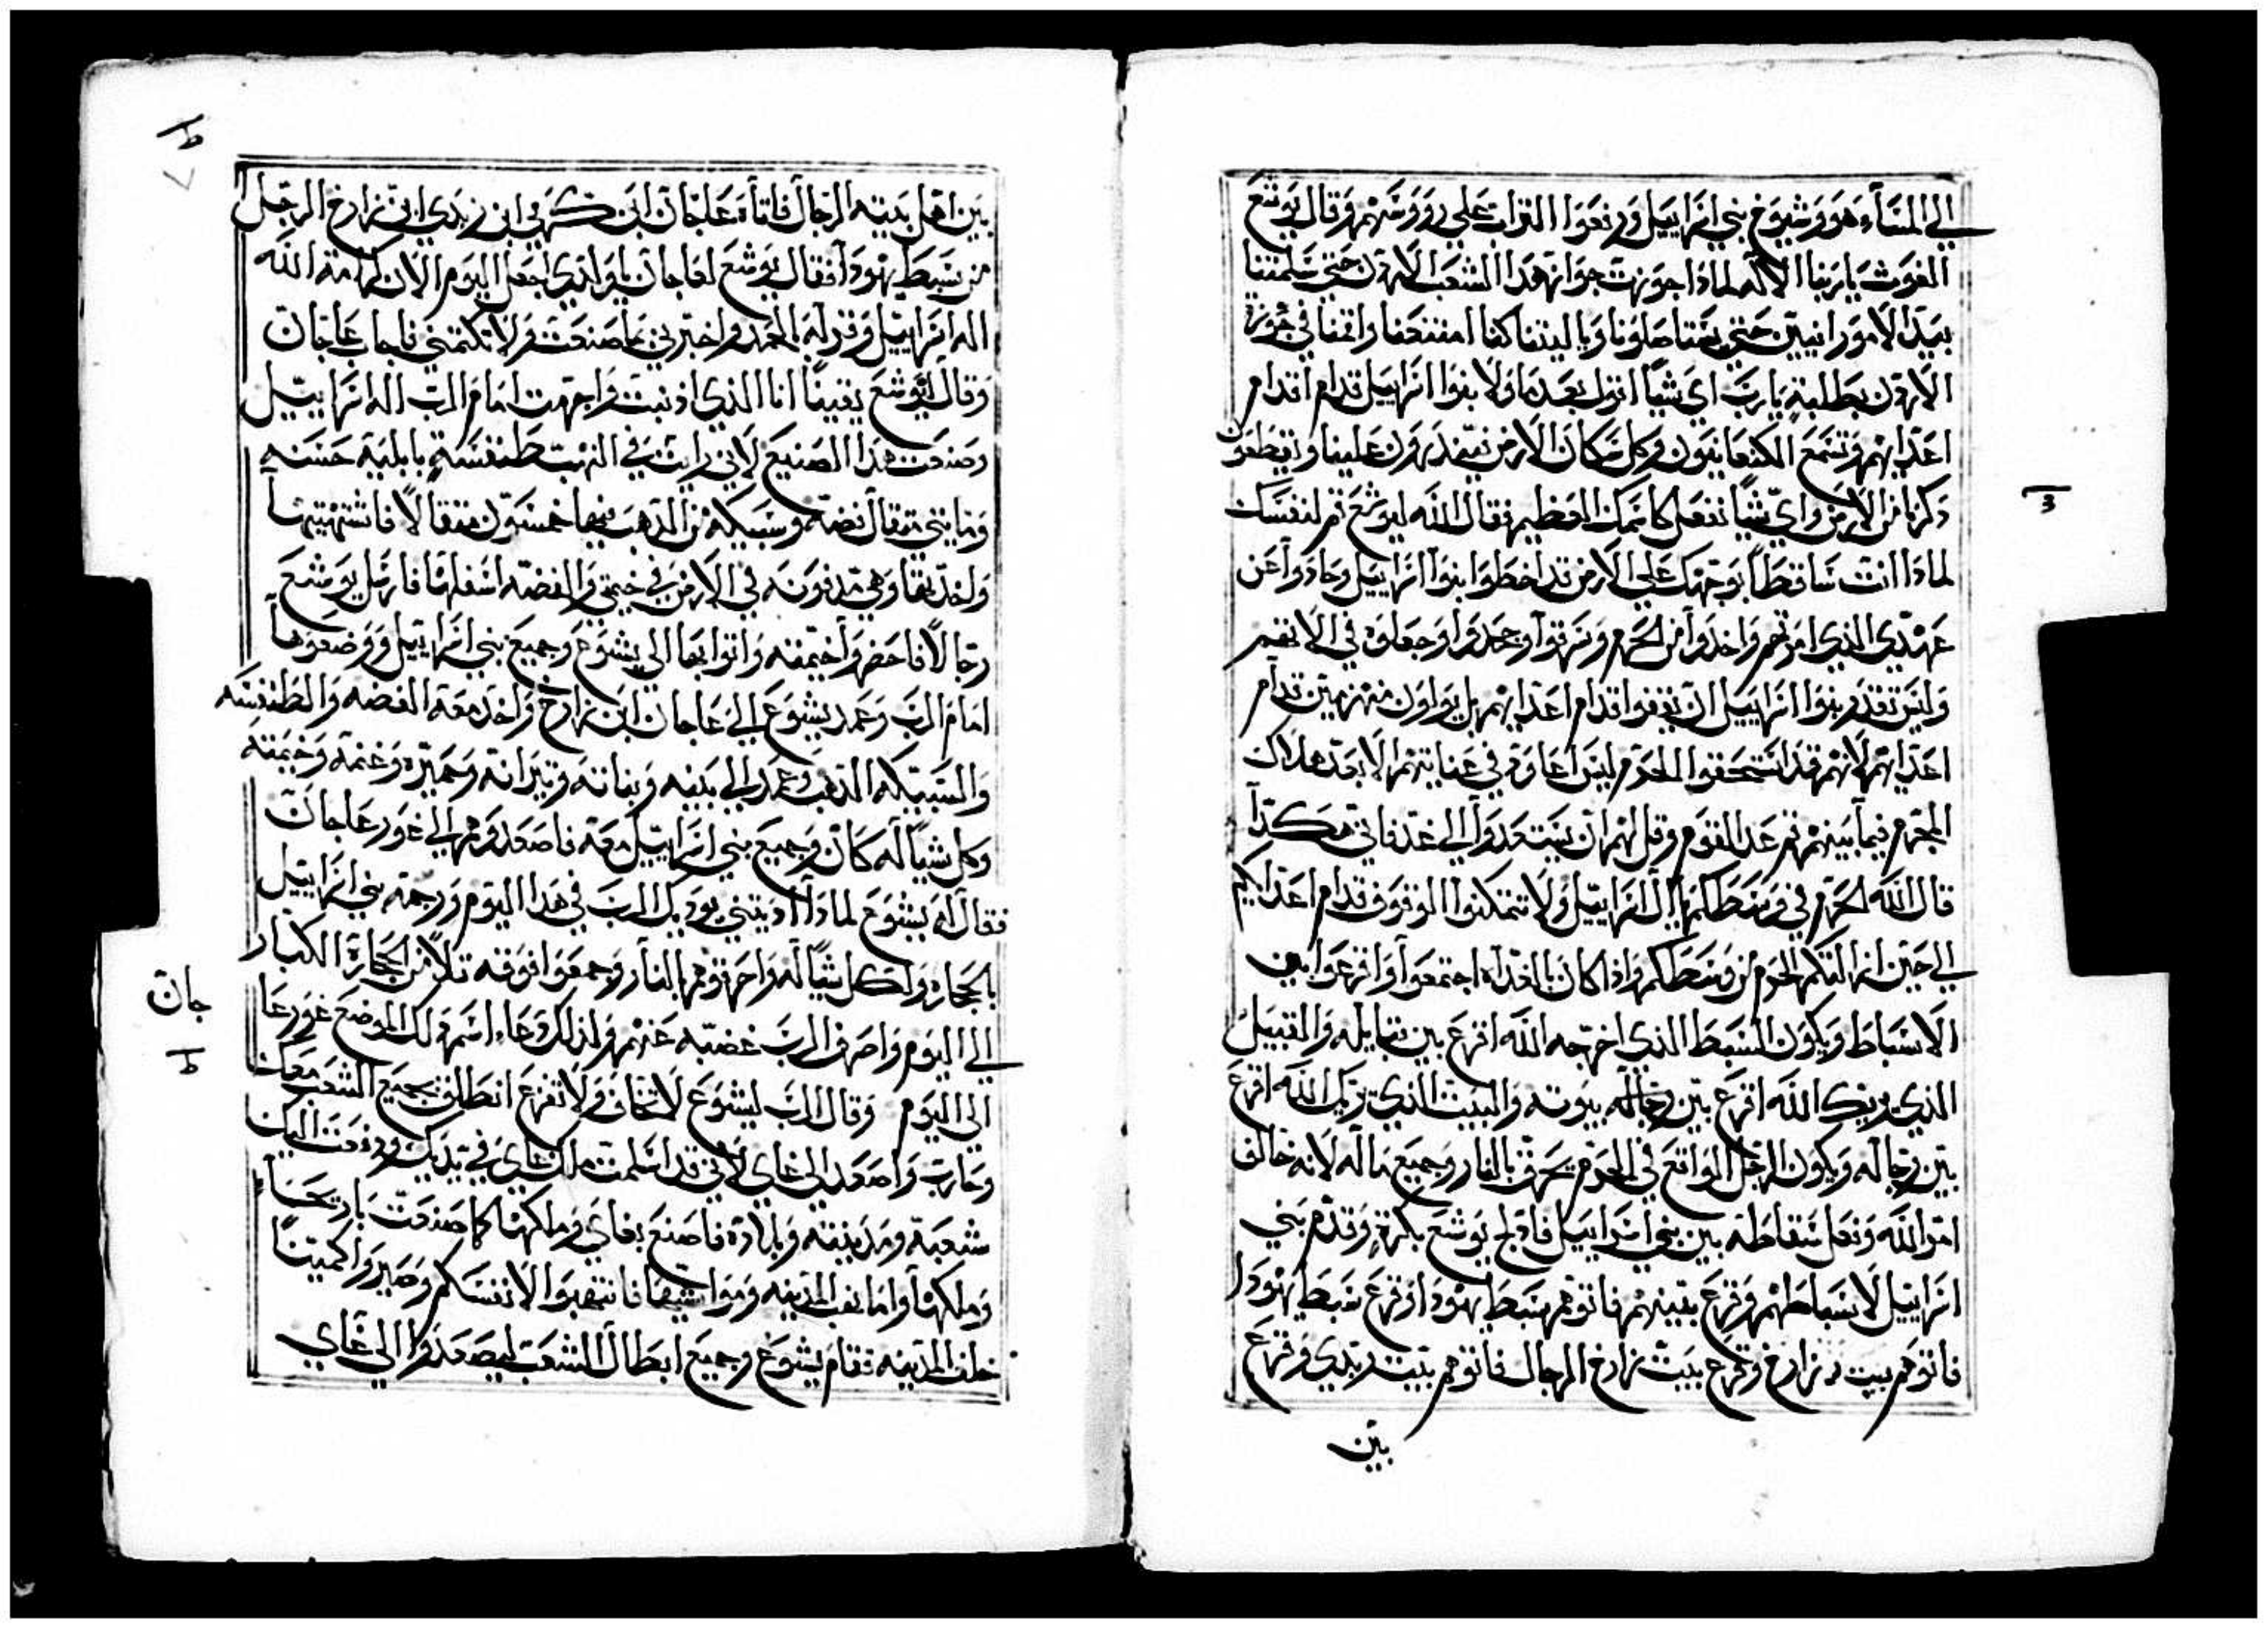 الي المسآء هو وشيوخ بني اسراييل ورفعوا التراب علي رووسهم وقال يوشع
الغوث يا ربنا الاله لماذا جوزت جوازه هذا الشعب الاردن حتي سلمتنا
بيد الامورانيين حتي يستاصلونا ويا ليتنا كنا امتنعنا واقمنا في
الاردن بطلبة يا رب اي شيا اقول بعدما ولا بنوا اسراييل قدام اقدام
اعدايهم وتسمع الكنعانيون وكل سكان الارض علينا ويقطعون
ذكرنا من الارض واي شيا تفعل كاسمك العظيم فقال الله ليوشع قم لنفسك
لماذا انت ساقطا بوجهك علي الارض قد اخطوا بنوا اسراييل وحادوا عن
عهدي الذي امرتهم واخدوا من الحرم وسرقوا وجحدوا وجعلوه في الاتهم
وليس تقدم بنوا اسراييل ان تقفوا قدام اعدايهم بل يولون منهزمين قدام
اعدايهم لانهم قد استحقوا الحرم ليس اعاود في عنايتهم الا بعد هلاك
المجرم فيما بينهم قم عد القوم وقل لهم ان يستعدوا الي غد فاني هكدا
قال الله الحرم في وسطكم يا ال اسراييل ولا تتمكنوا الوقوف قدام اعدايكم
الي حين ازالتكم الحرم من وسطكم واذا كان بالغداه اجتمعوا واقرعوا بين
الاسباط ويكون السبط الذي اخرجه الله اقرع بين قبايله والقبيل
الذي يربك الله اقرع بين رجاله بيوته والبيت الذي تربك الله اقرع
بين رجاله ويكون الرجل الواقع في الحرم يحرق بالنار وجميع ماله لانه خالف
امر الله وفعل سقاطه بين بني اسراييل فادلج يوشع بكرة وقدم بني
اسراييل لاسباطهم وقرع بينهم فاتوهم سبط يهودا وقرع سبط يهودا
فاتوهم بيت زارخ وقرع بيت زارخ الرجال فاتوهم بيت زبدي وقرع
بين
بين اهل بيته الرجال فاتاه عاجان ابن كرمي ابن زبدي ابن زارخ الرجل
من سبط يهودا فقال يوشع لعاجان يا ولدي اجعل اليوم الان كرامة الله
اله اسراييل وقر له الحمد واخبرني بما صنعت ولا تكتمني فاجاب عاجان
وقال ليوشع يقينا انا الذي اذنبت واجرمت امام الرب اله اسراييل
وصنعت هذا الصنيع لاني رايت في النهب طنفسة بابلية حسنه
ومايتي مثقال فضه وسبيكه من الذهب فيها خمسون مثقالا فاشتهيتها
واخدتها وهي مدفونه في الارض في خيمتي والفضه اسفلها فارسل يوشع
رجالا فاحضروا خيمته واتوا بها الي يشوع وجميع بني اسراييل ووضعوها
امام الرب وعمد يشوع الي عاجان ابن زارخ واخد معه الفضه والطنفسه
والسبيكه الذهب وعمد الي بنيه وبناته وتيرانه وحميره وغنمه وخيمته
وكل شيا له كان وجميع بني اسراييل معه فاصعدوهم الي غور عاجان
فقال له يشوع لماذا اديتني يوديك الرب في هذا اليوم ورجمه بني اسراييل
بالحجاره ولكل شيا له واحرقوهم بالنار وجمعوا فوقه تلا من الحجارة الكبار
الي اليوم واصرف الرب غضبه عنهم ولذلك دعا اسم ذلك الموضع غور عا
جان
الي اليوم وقال الرب ليشوع لا تخاف ولا تفزع انطلق بجميع الشعب معك
وحارب واصعد الي غاي لاني قد اسلمت ملك غاي في يديك ودفعت اليك
شعبه ومدينته وبلاده فاصنع بغاي وملكها كما صنعت باريحا
وملكها واما نهب المدينه ومواشيها فانتهبوا لانفسكم وصيروا كمينا
خلف المدينه فقام يشوع وجميع ابطال الشعب ليصعدوا الي غاي